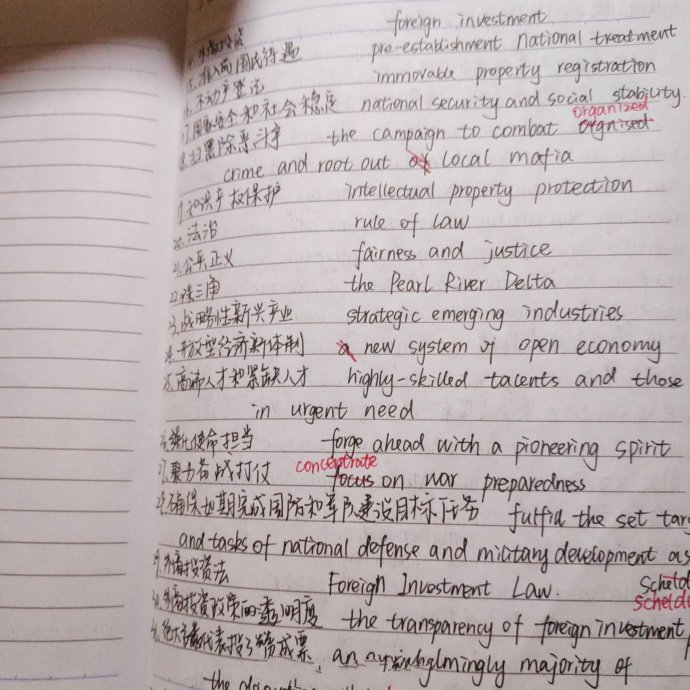 foreign investment
外商投资
15. 准入前国民待遇 pre-establishment national treatment
16. 不动产登记 immovable property registration
17. 国家安全和社会稳定 national security and social stability.
organized
18. 扫黑除恶斗争 the campaign to combat orgnised
crime and root out of local mafia
19. 知识产权保护 intellectual property protection
20. 法治 rule of law
21. 公平正义 fairness and justice
22. 珠三角 the Pearl River Delta
23. 战略性新兴产业 strategic emerging industries
24. 开放型经济新体制 a new system of open economy
25. 高端人才和紧缺人才 highly-skilled talents and those
in urgent need
26. 强化使命担当 forge ahead with a pioneering spirit
concentrate
27. 聚力备战打仗 focus on war preparedness
28. 确保如期完成国防和军队建设目标任务 fulfill the set
and tasks of national defense and military development as
29. 外商投资法 Foreign Investment Law.
30. 外商投资政策的透明度 the transparency of foreign investment
31. 绝大多数代表投了赞成票, an majority of
the